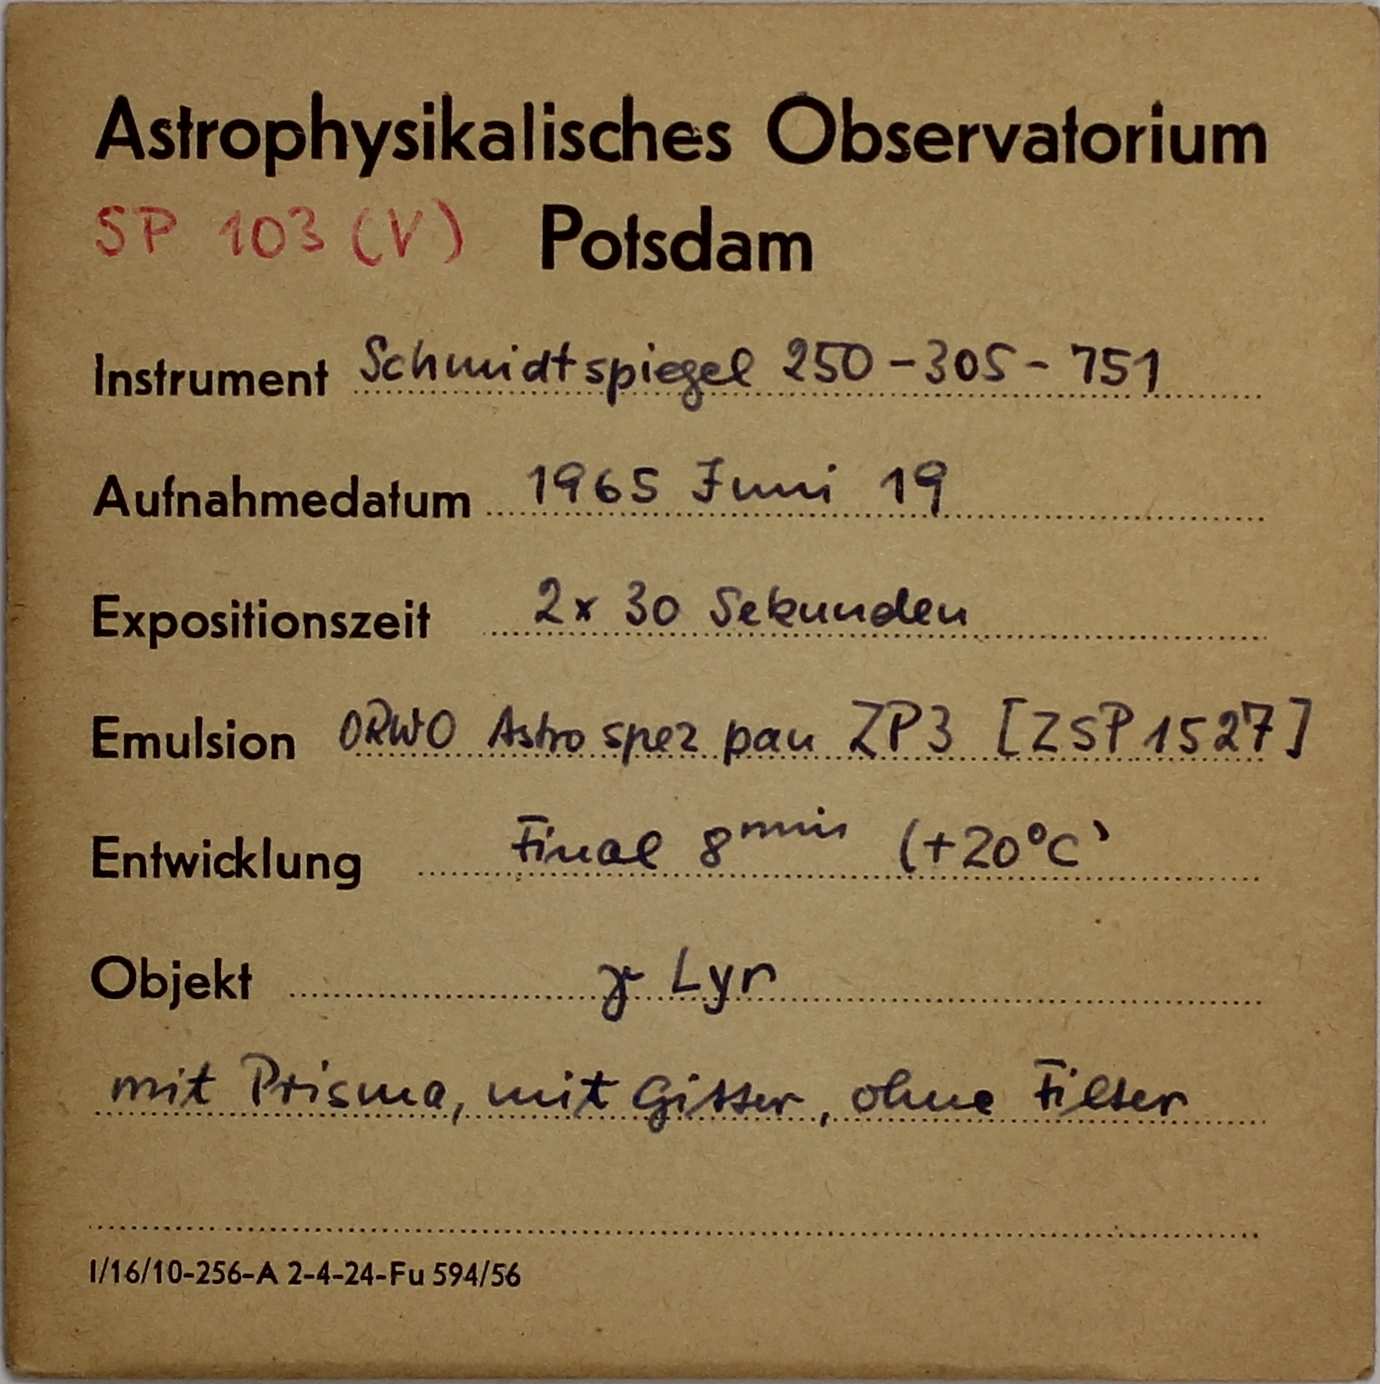 Astrophysikalisches Observatorium
SP 103 (V) Potsdam
Instrument Schmidtspiegel 250-305-751
Aufnahmedatum 1965 Juni 19
Expositionszeit 2x 30 Sekunden
Emulsion ORWO Astro spez pan ZP3 [ZSP1527]
Entwicklung Final 8min (+20°C)
Objekt γ Lyr
mit Prisma, mit Gitter, ohne Filter
I/16/10-256-A 2-4-24-Fu 594/56